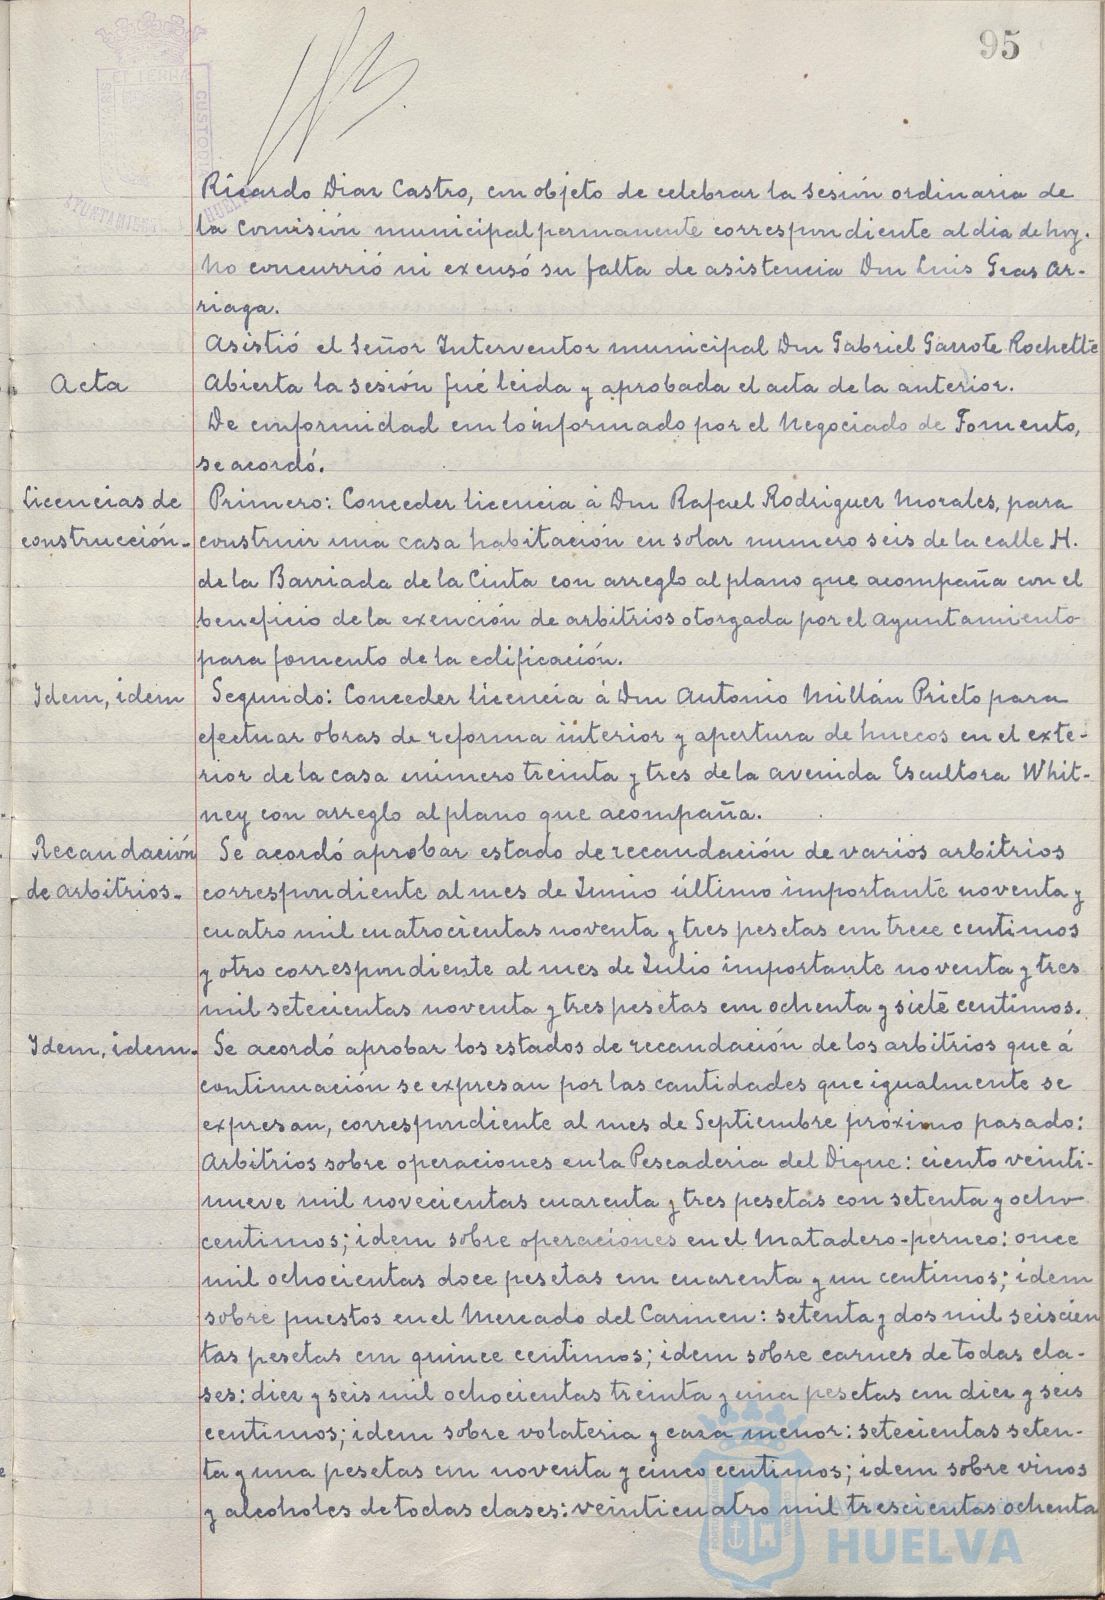 95
Ricardo Diaz Castro, con objeto de celebrar la sesión ordinaria de
la Comisión municipal permanente correspondiente al dia de hoy.
No concurrió ni excusó su falta de asistencia Don Luis Gras Ar-
riaga.
Asistió el Señor Interventor municipal Don Gabriel Garrote Rochette
Acta
Abierta la sesión fué leida y aprobada el acta de la anterior.
De conformidad con lo informado por el Negociado de Fomento,
se acordó.
Licencias de
construcción.
Primero: Conceder licencia á Don Rafael Rodriguez Morales, para
construir una casa habitación en solar numero seis de la calle H.
de la Barriada de la Cinta con arreglo al plano que acompaña con el
beneficio de la exención de arbitrios otorgada por el Ayuntamiento
para fomento de la edificación.
Idem, idem
Segundo: Conceder licencia á Don Antonio Millán Prieto para
efectuar obras de reforma interior y apertura de huecos en el exte-
rior de la casa número treinta y tres de la avenida Escultora Whit-
ney con arreglo al plano que acompaña.
Recaudación
de arbitrios.
Se acordó aprobar estado de recaudación de varios arbitrios
correspondiente al mes de Junio último importante noventa y
cuatro mil cuatrocientas noventa y tres pesetas con trece centimos
y otro correspondiente al mes de Julio importante noventa y tres
mil setecientas noventa y tres pesetas con ochenta y siete centimos.
Idem, idem.
Se acordó aprobar los estados de recaudación de los arbitrios que á
continuación se expresan por las cantidades que igualmente se
expresan, correspondiente al mes de Septiembre próximo pasado:
Arbitrios sobre operaciones en la Pescaderia del Dique: ciento veinti-
nueve mil novecientas cuarenta y tres pesetas con setenta y ocho
centimos; idem sobre operaciones en el Matadero-perneo: once
mil ochocientas doce pesetas con cuarenta y un centimos; idem
sobre puestos en el Mercado del Carmen: setenta y dos mil seiscien
tas pesetas con quince centimos; idem sobre carnes de todas cla-
ses: diez y seis mil ochocientas treinta y una pesetas con diez y seis
centimos; idem sobre volateria y caza menor: setecientas seten-
ta y una pesetas con noventa y cinco centimos; idem sobre vinos
y alcoholes de todas clases: veinticuatro mil trescientas ochenta
HUELVA